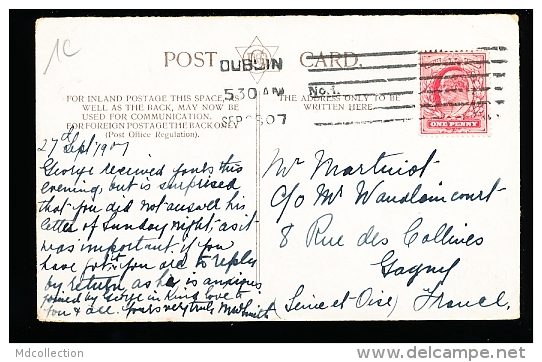 1C
POST CARD.
DUBLIN
5.30 AM
SEP 07
No. 1.
FOR INLAND POSTAGE THIS SPACE, AS
WELL AS THE BACK, MAY NOW BE
USED FOR COMMUNICATION.
FOR FOREIGN POSTAGE THE BACK ONLY
(Post Office Regulation).
THE ADDRESS ONLY TO BE
WRITTEN HERE.
ONE PENNY
27th Sept 1907
George received yours this
evening, but is surprised
that you did not answer his
letter of Sunday night, as it
was important if you
have got it you are to reply
by return as he is anxious
joined by George in kind love to
you & all. Yours very truly Smith
Mr Martiniot
c/o Mr Vaudaincourt
8 Rue des Collines
Gagny
(Seine et Oise) France.
Mdcollection
http://www.delcampe.net